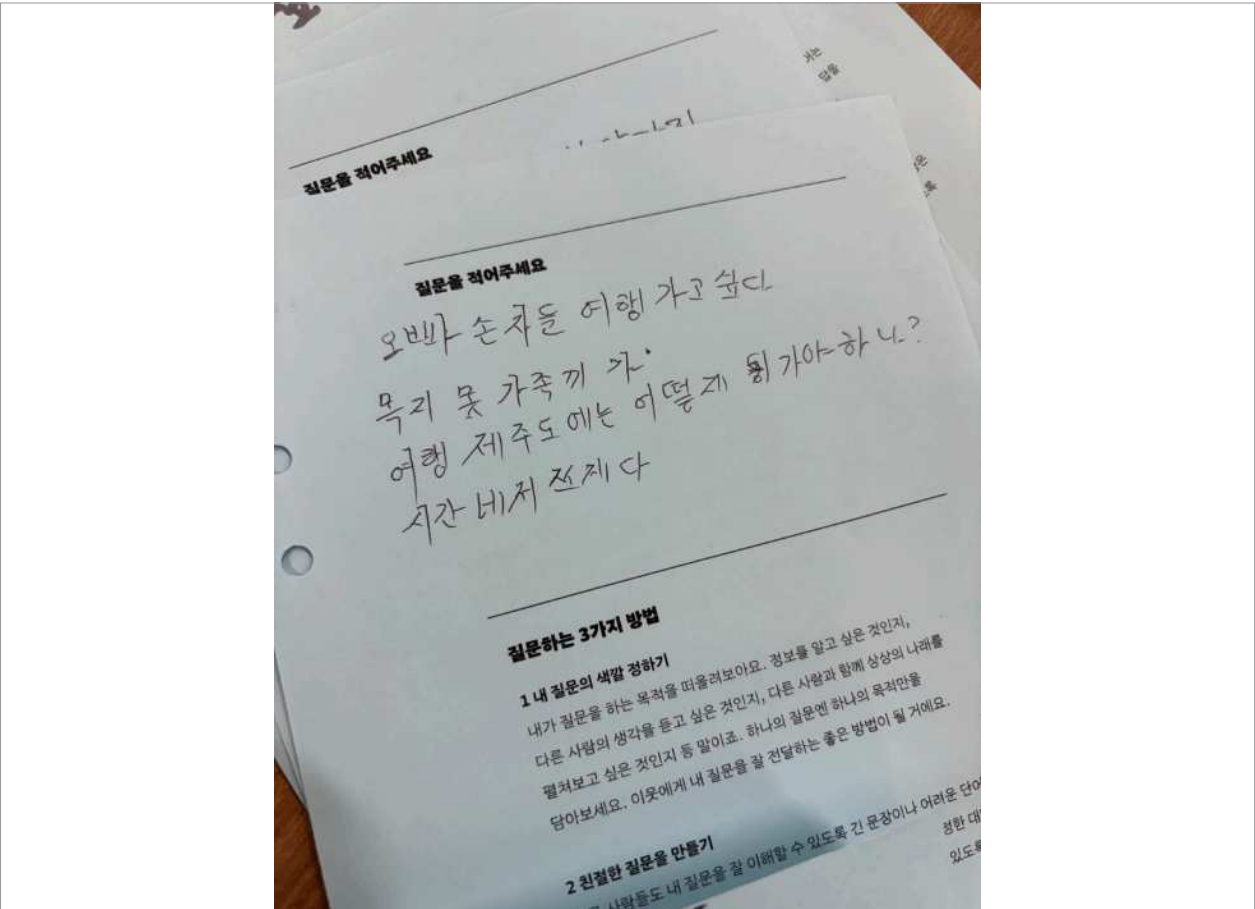 질문을 적어주세요
질문을 적어주세요
오빠가 손자들 여행 가고 싶다
목지 못 가족끼 가.
여행 제주도에는 어떻게 가야하나?
시간
질문하는 3가지 방법
1 내 질문의 색깔 정하기
내가 질문을 하는 목적을 떠올려보아요. 정보를 알고 싶은 것인지,
다른 사람의 생각을 듣고 싶은 것인지, 다른 사람과 함께 상상의 나래를
펼쳐보고 싶은 것인지 등 말이죠. 하나의 질문엔 하나의 목적만을
담아보세요. 이웃에게 내 질문을 잘 전달하는 좋은 방법이 될 거예요.
2 친절한 질문을 만들기
사람들도 내 질문을 잘 이해할 수 있도록 긴 문장이나 어려운